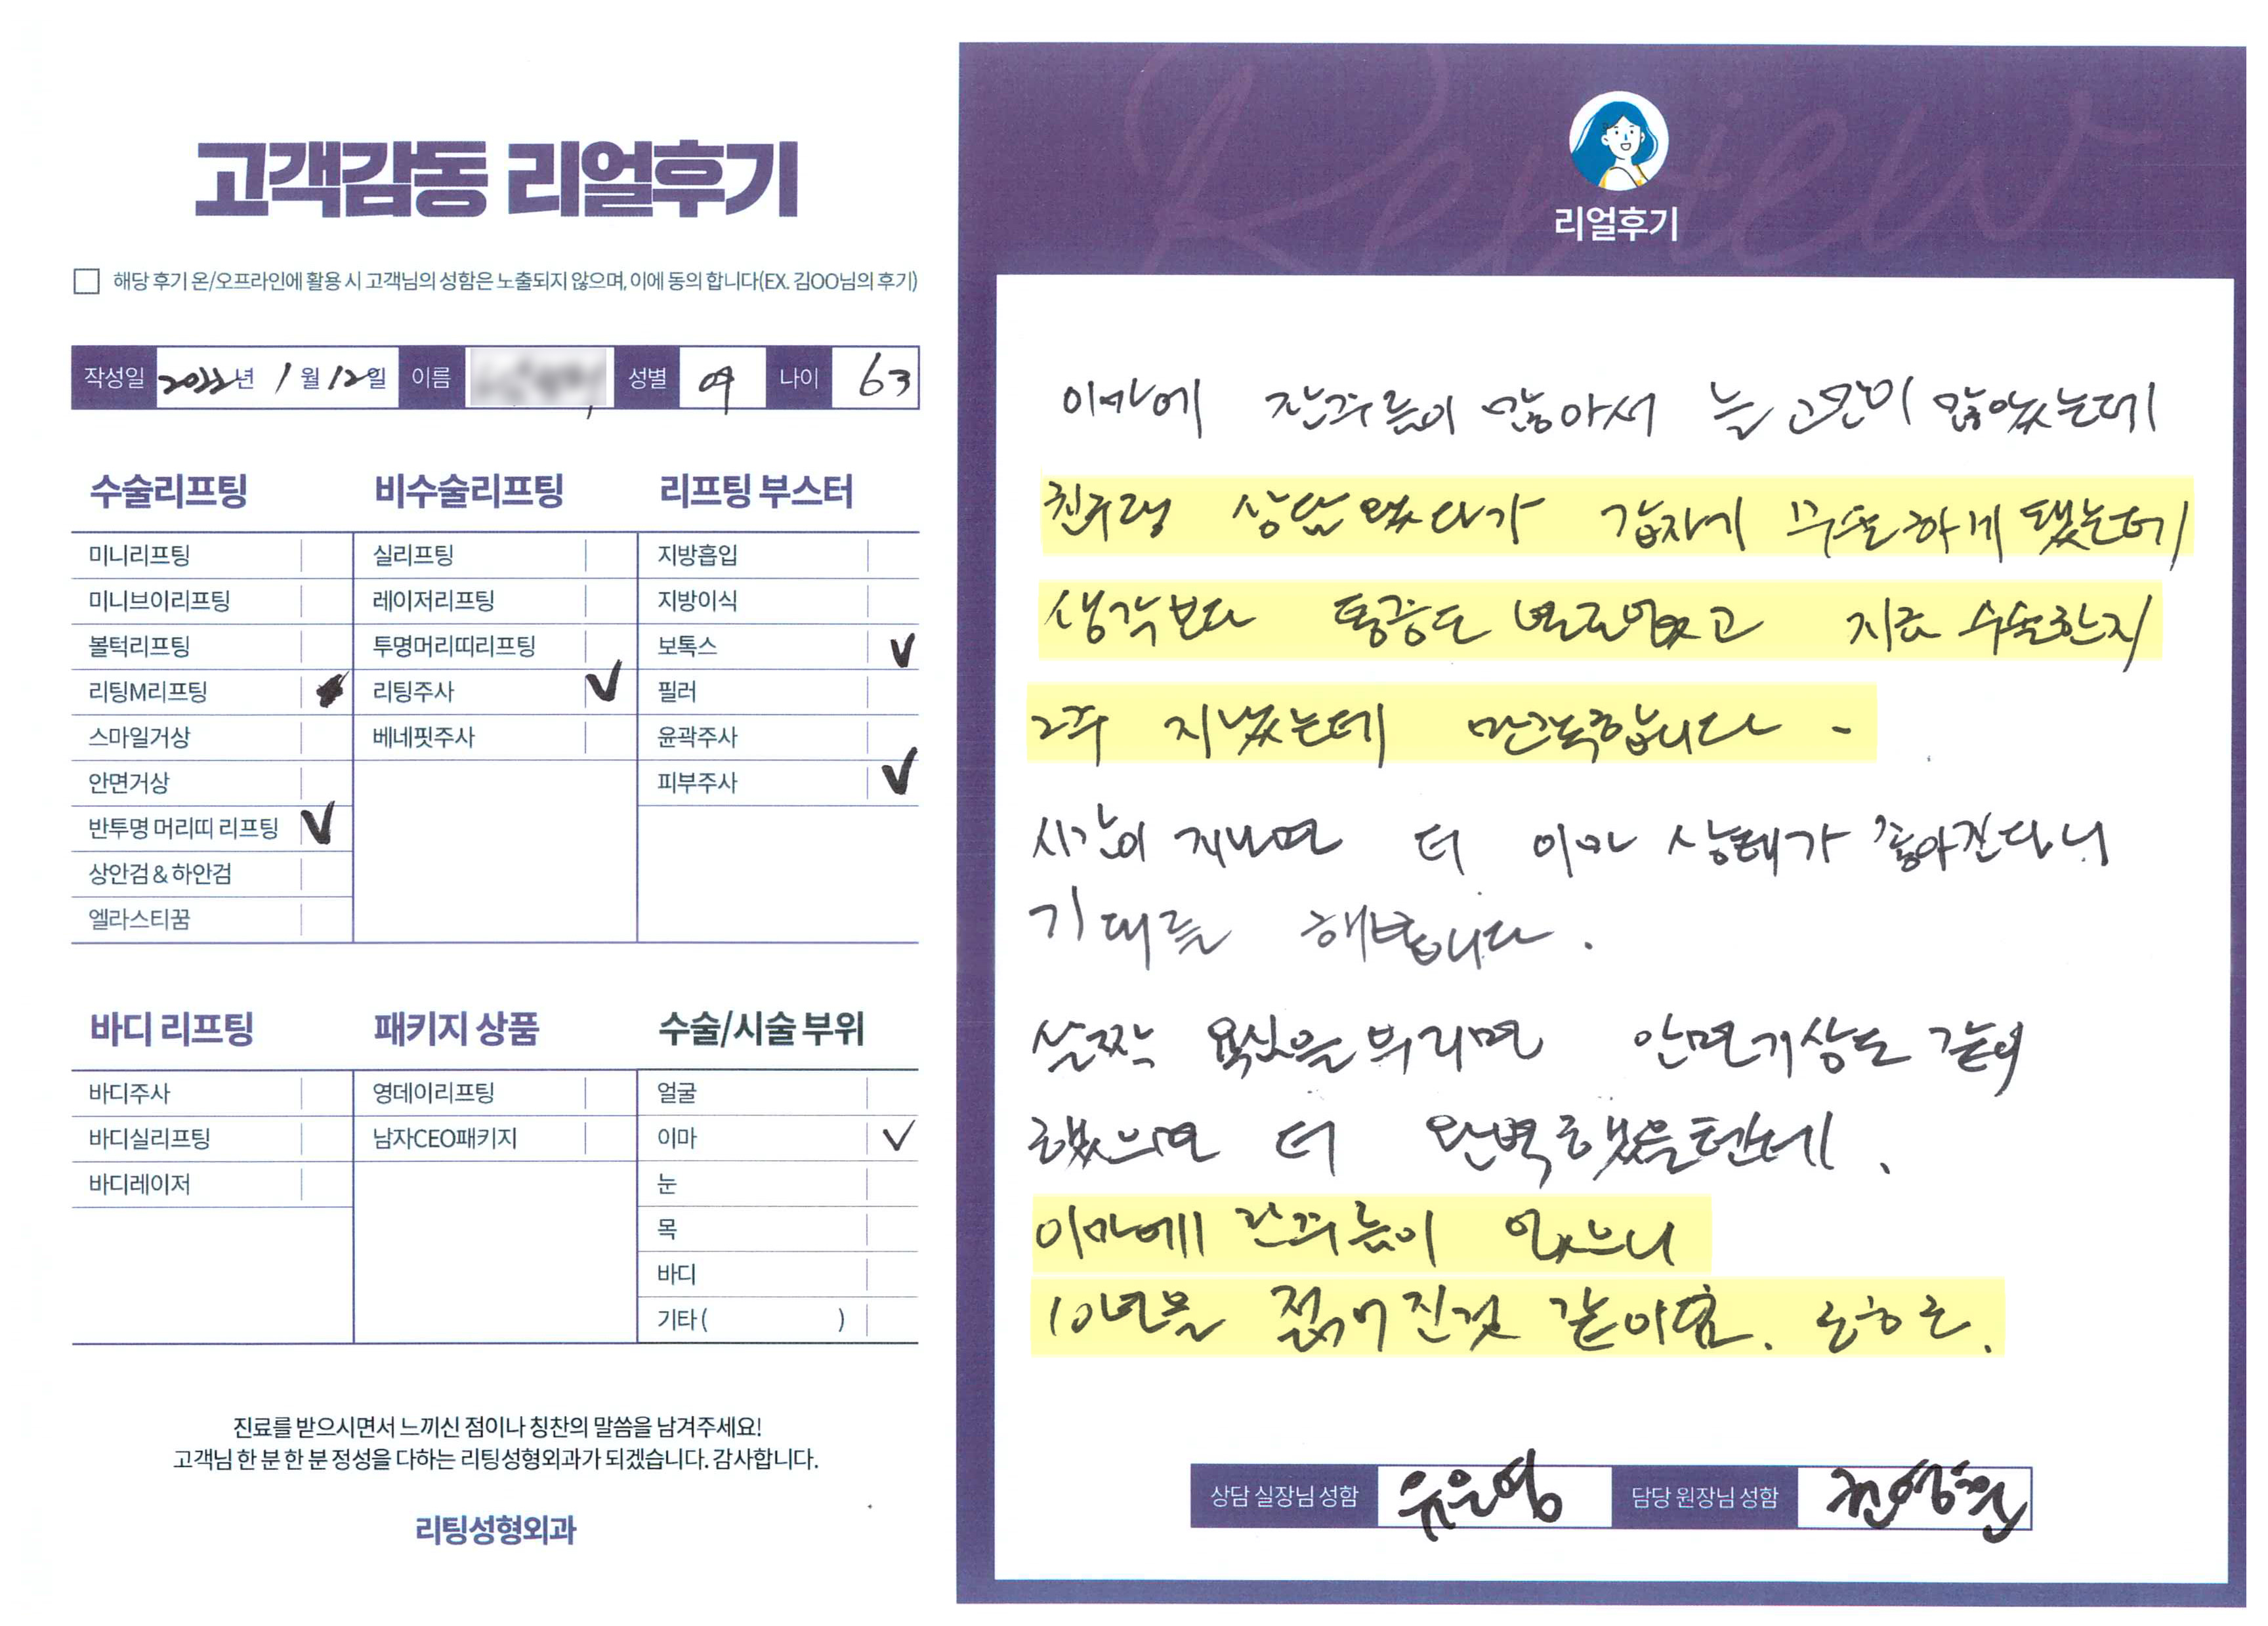 고객감동 리얼후기
해당 후기 온/오프라인에 활용 시 고객님의 성함은 노출되지 않으며, 이에 동의 합니다(EX. 김OO님의 후기)
작성일 2022년 1월 12일 이름 성별 여 나이 63
수술리프팅
미니리프팅
미니브이리프팅
볼턱리프팅
리팅M리프팅
스마일거상
안면거상
반투명 머리띠 리프팅 V
상안검 & 하안검
엘라스티꿈
비수술리프팅
실리프팅
레이저리프팅
투명머리띠리프팅
리팅주사 V
베네핏주사
리프팅 부스터
지방흡입
지방이식
보톡스 V
필러
윤곽주사
피부주사 V
바디 리프팅
바디주사
바디실리프팅
바디레이저
패키지 상품
영데이리프팅
남자CEO패키지
수술/시술 부위
얼굴
이마 V
눈
목
바디
기타 ( )
진료를 받으시면서 느끼신 점이나 칭찬의 말씀을 남겨주세요!
고객님 한 분 한 분 정성을 다하는 리팅성형외과가 되겠습니다. 감사합니다.
리팅성형외과
Review
리얼후기
이마에 잔주름이 많아서 늘 고민이 많았는데
친구랑 상담왔다가 갑자기 수술하게 됐는데
생각보다 통증도 별로없었고 지금 수술한지
2주 지났는데 만족합니다 -
시간이 지나면 더 이마 상태가 좋아진다니
기대를 해봅니다.
살짝 욕심을 부리면 안면거상도 같이
했으면 더 완벽했을텐데.
이마에 잔주름이 없으니
10년은 젊어진것 같아요. 호호호.
상담 실장님 성함 유은영 담당 원장님 성함